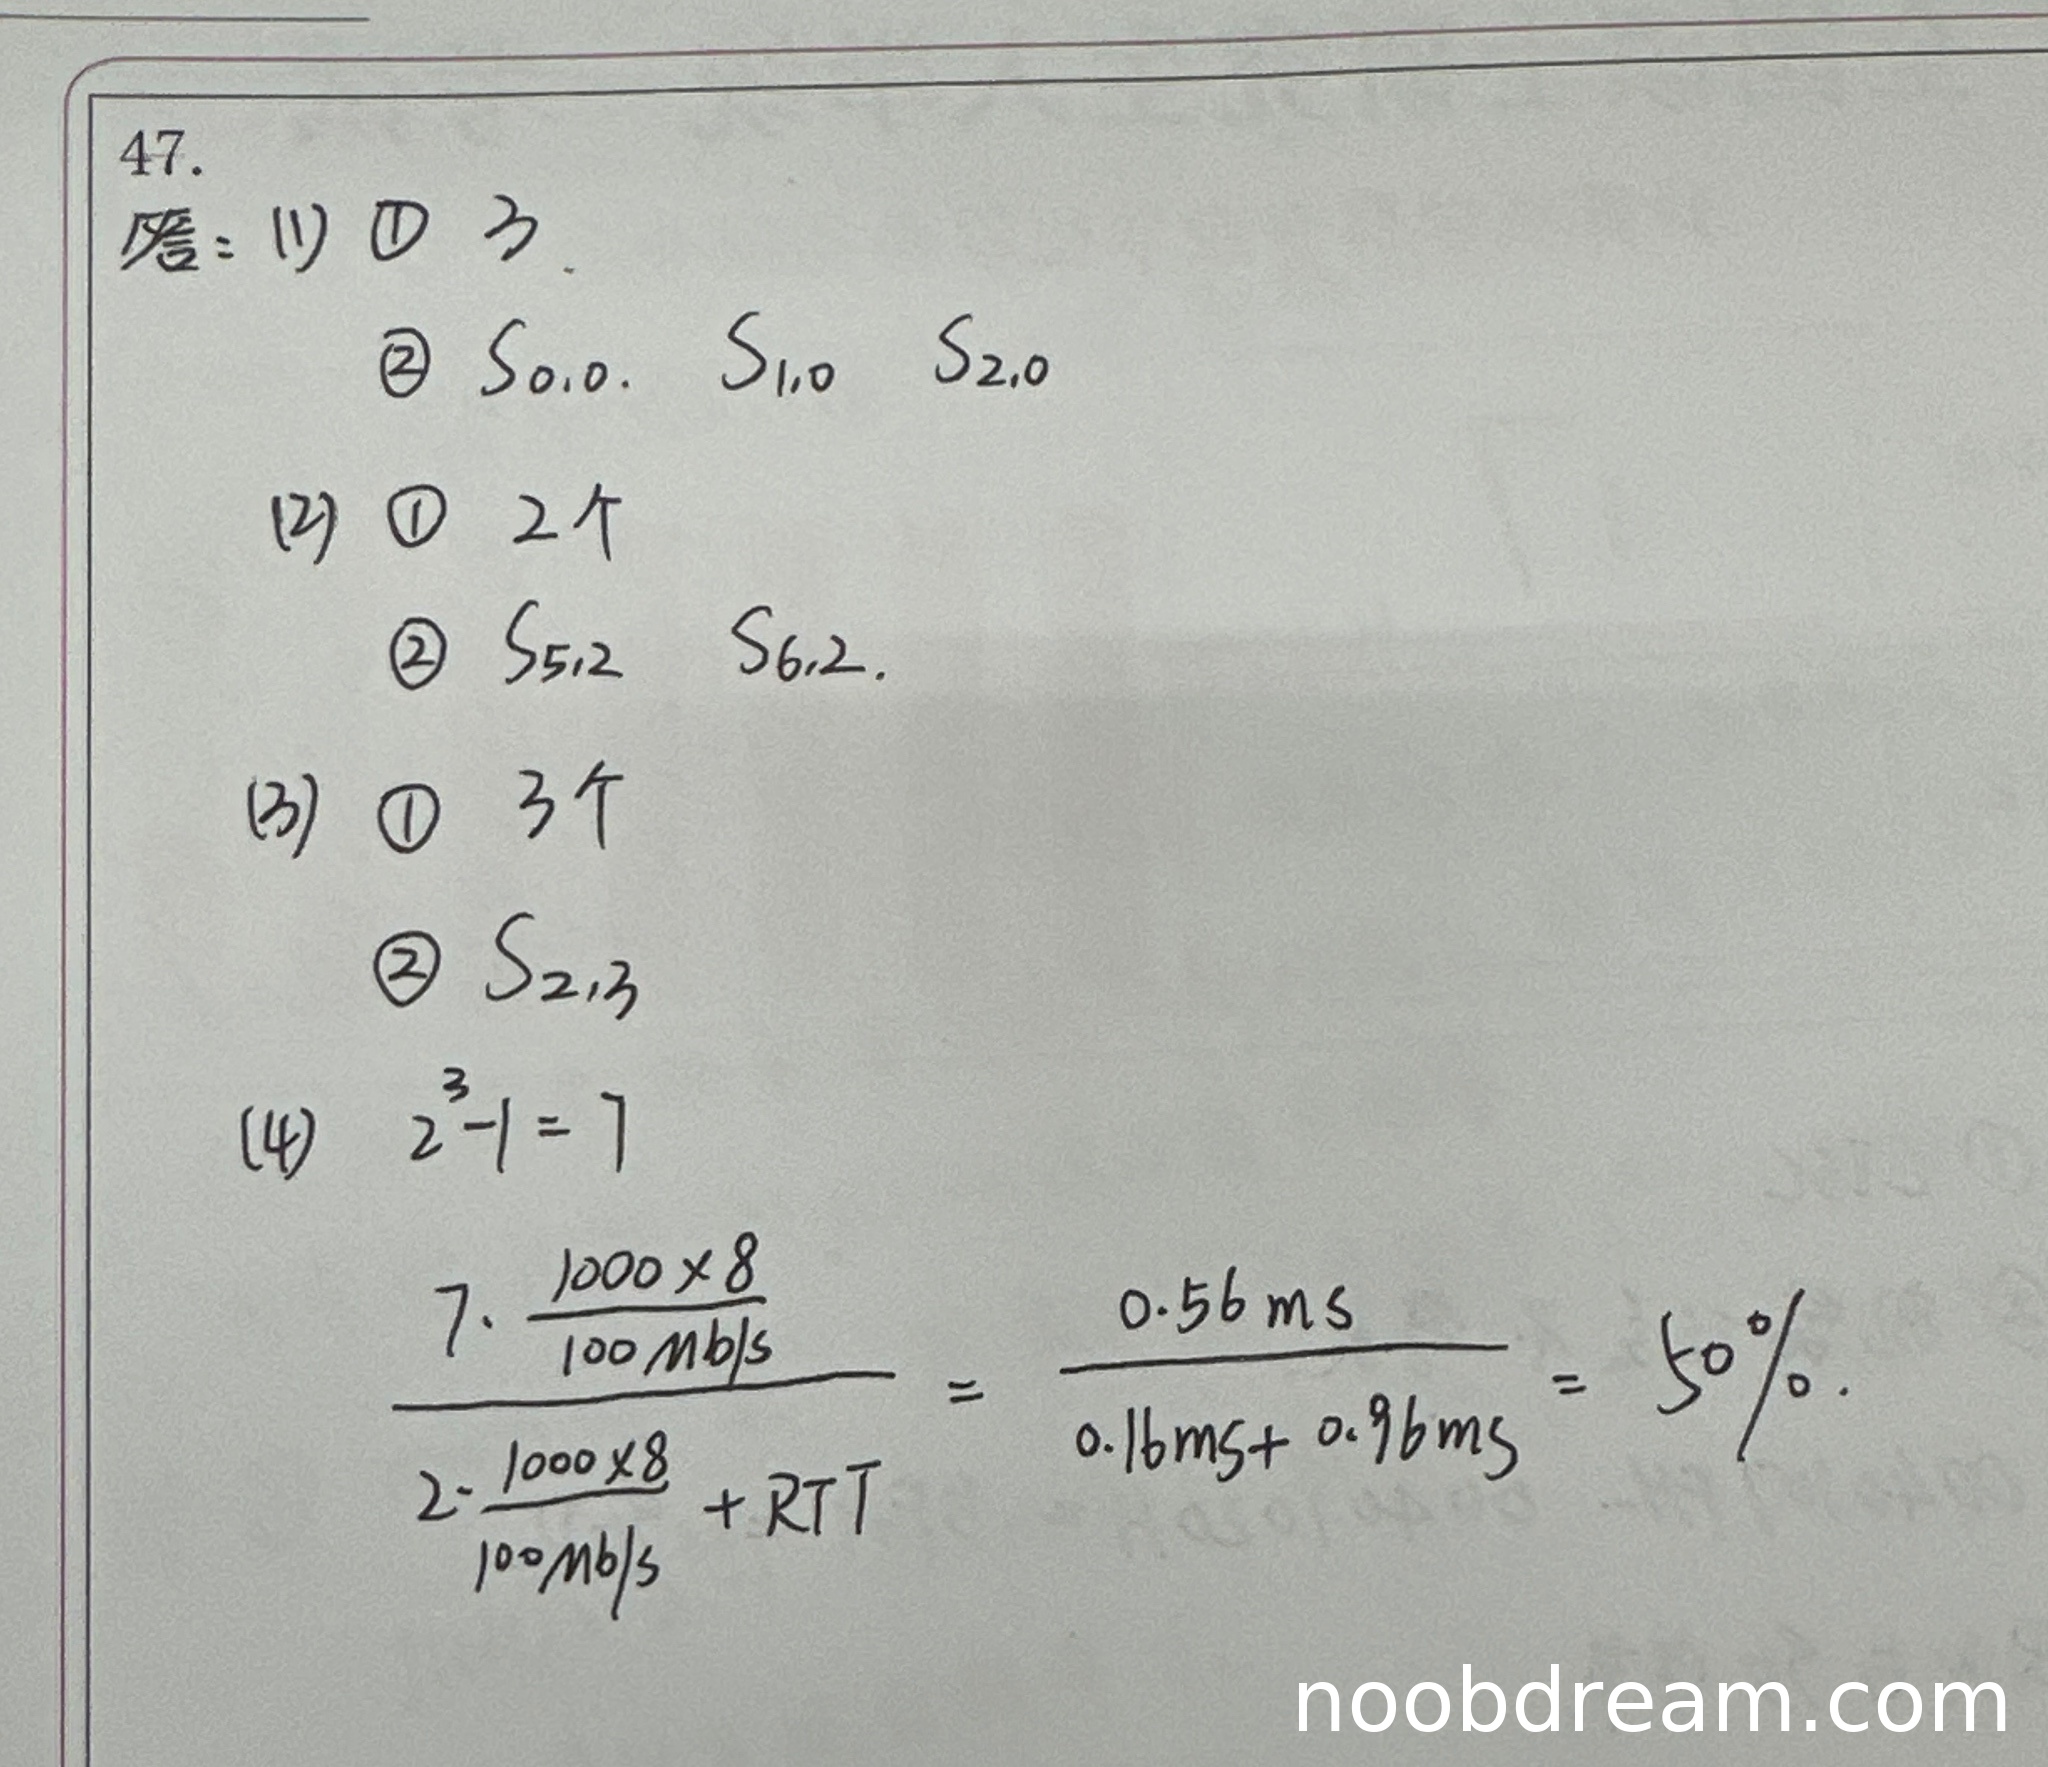 47.
答: (1) ① 3
② S0,0. S1,0 S2,0
(2) ① 2个
② S5,2 S6,2.
(3) ① 3个
② S2,3
(4) 2³-1=7
7· 1000×8 / 100Mb/s / 2· 1000×8 / 100Mb/s + RTT = 0.56ms / 0.16ms+0.96ms = 50%.
noobdream.com